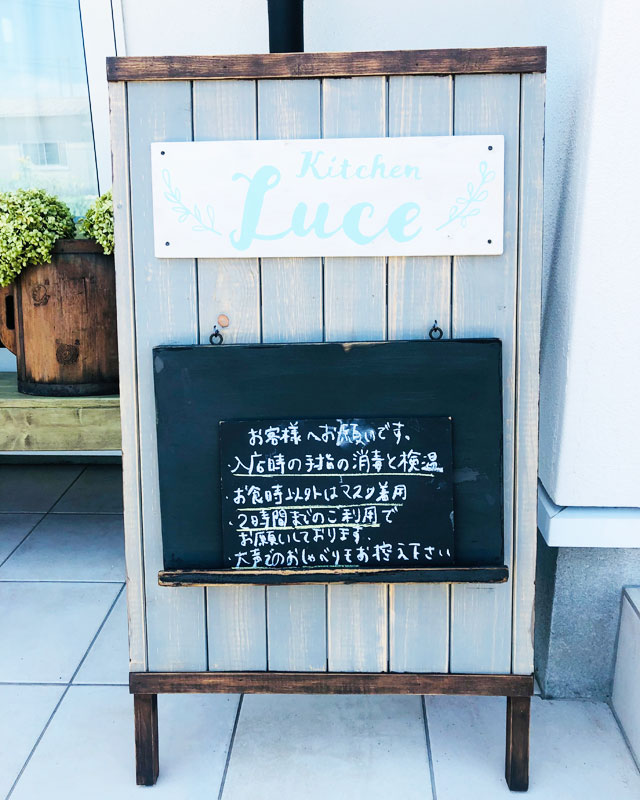 Kitchen
Luce
お客様へお願いです。
・入店時の手指の消毒と検温
・お食時以外はマスク着用
・2時間までのご利用で
お願いしております。
・大声でのおしゃべりもお控え下さい